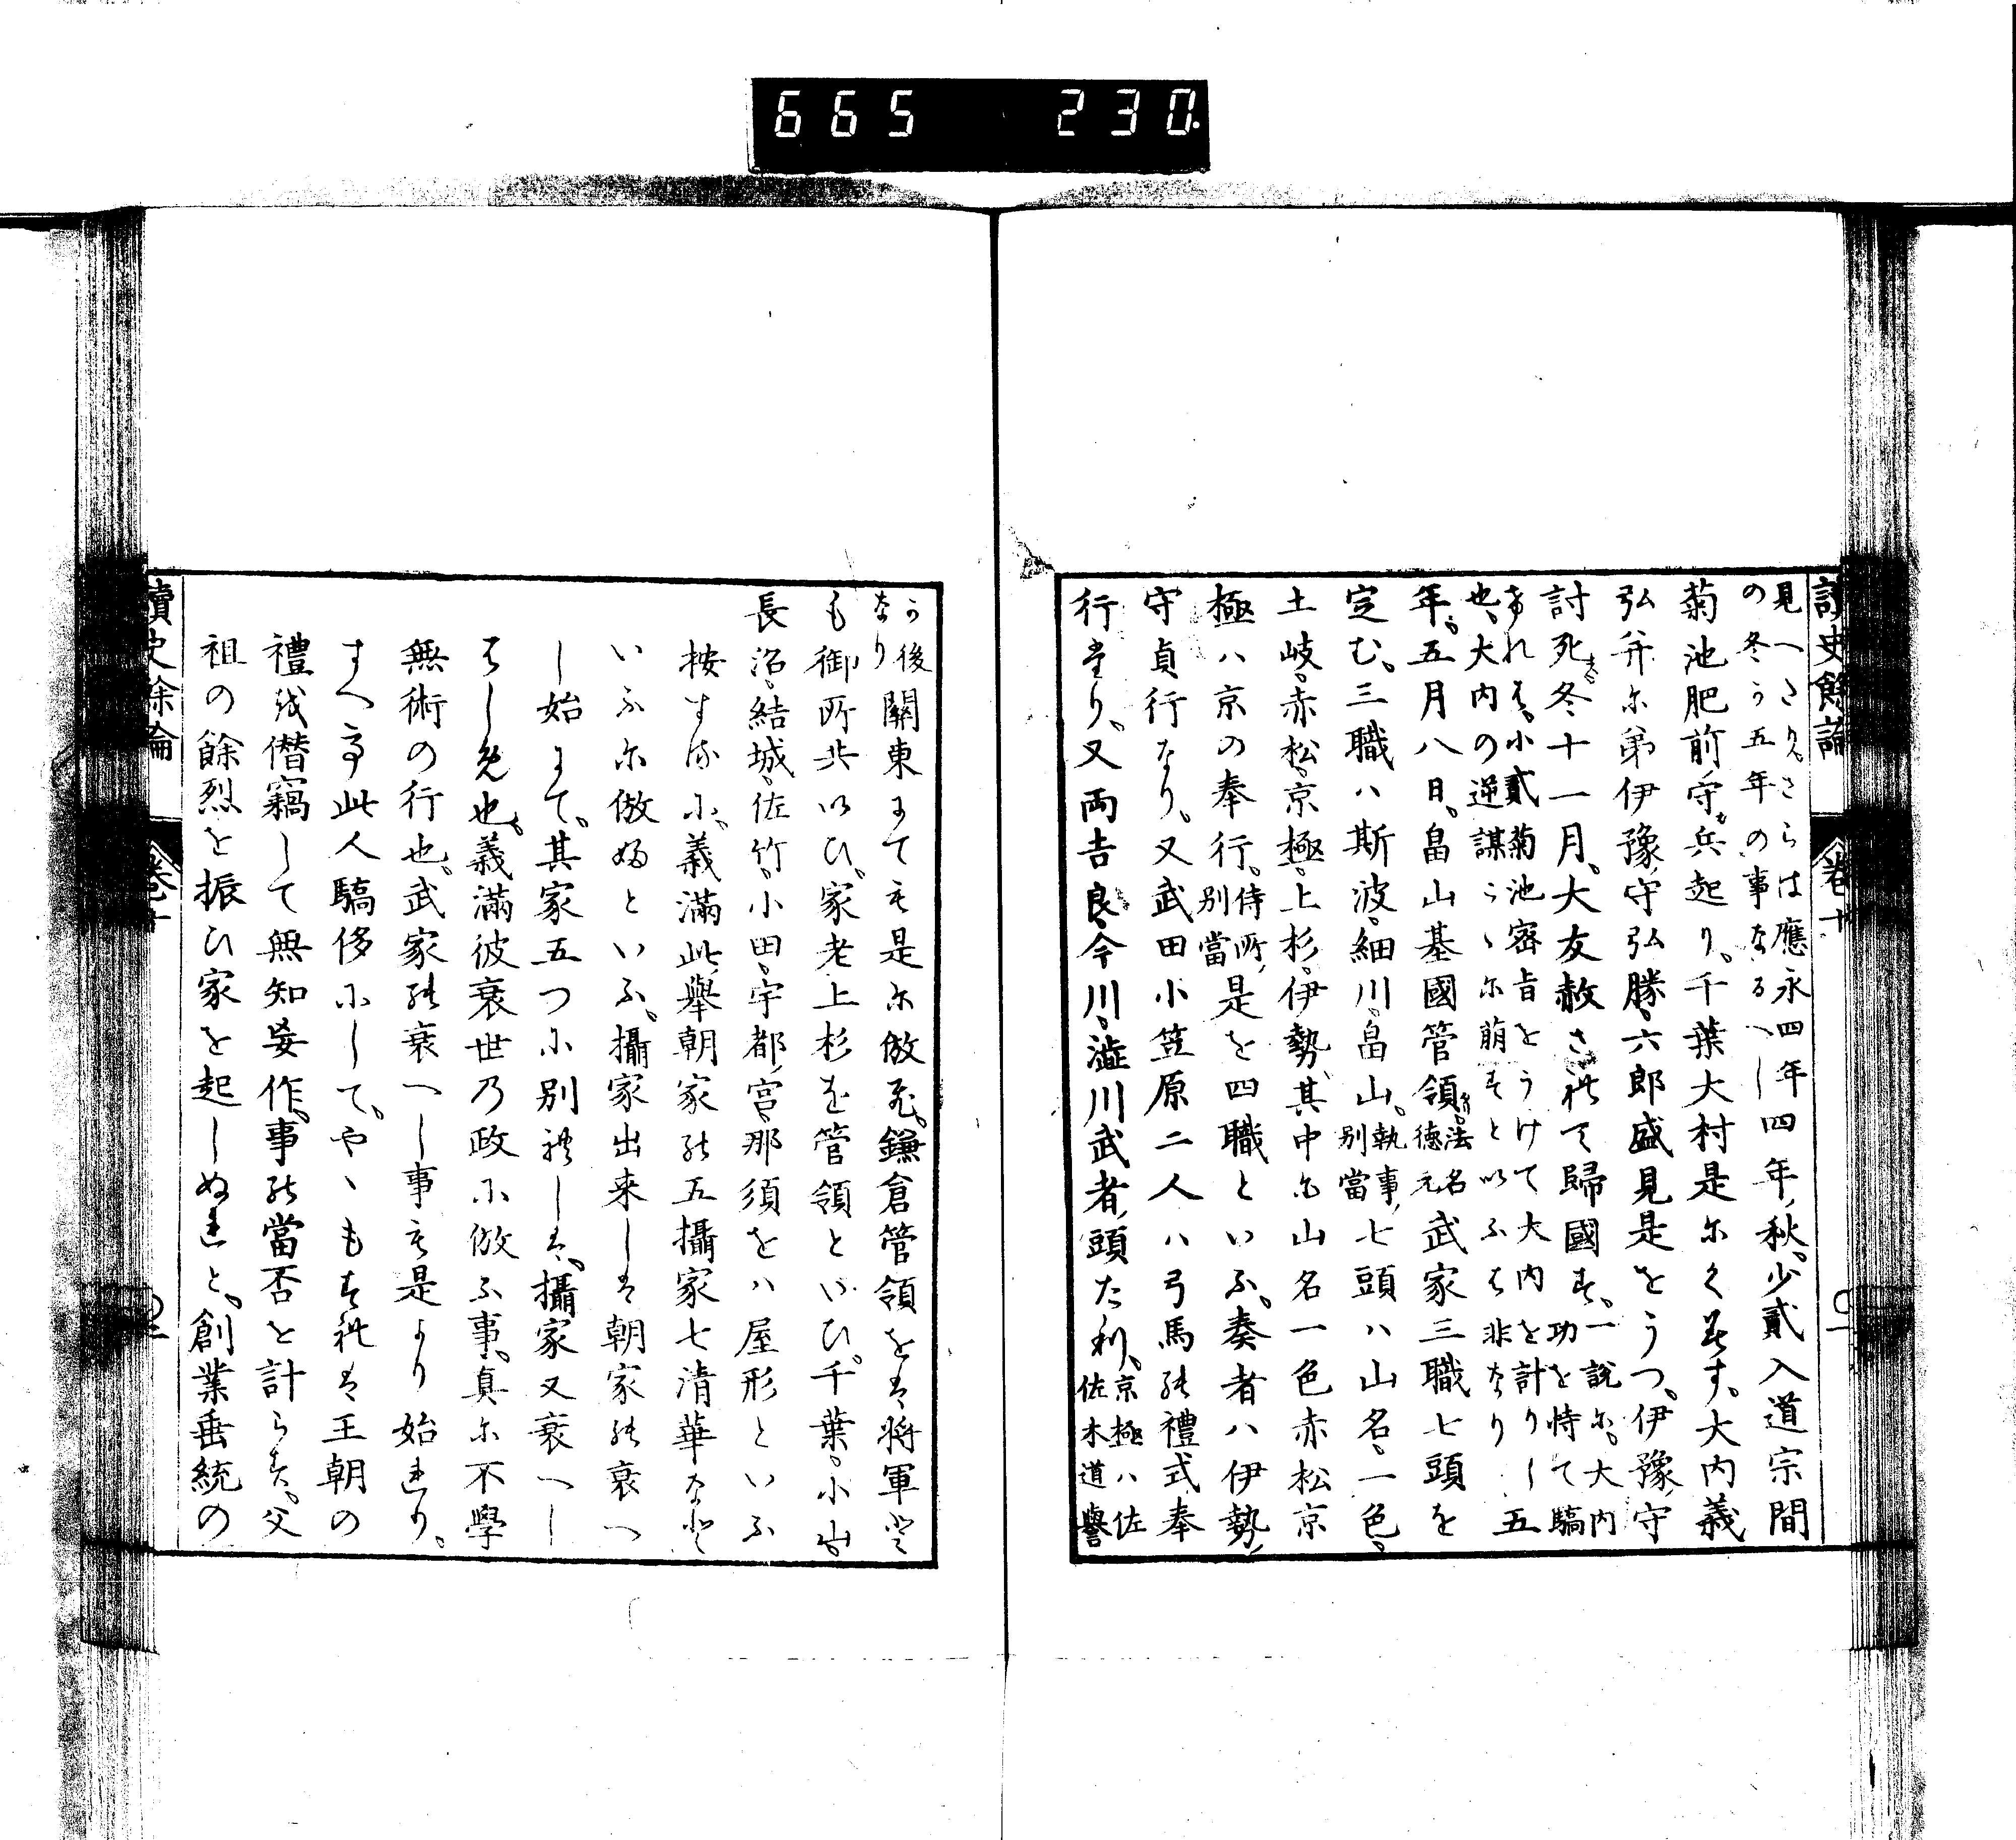 665 230.
讀史餘論 巻十
見へたり。さらは應永四年
の冬か五年の事なるへし
四年秋。少貳入道宗間
菊池肥前守兵起り。千葉大村是にくみす。大内義
弘并に弟伊豫守弘勝。六郎盛見是をうつ。伊豫守
討死す。冬十一月。大友赦されて歸國す。一説に。大内
功を恃て驕
けれは。小貳菊池密旨をうけて大内を計りし
也。大内の逆謀こゝに萠すと以ふは非なり
五
年。五月八日。畠山基國管領す。法名
徳元
武家三職七頭を
定む。三職ハ斯波。細川。畠山。執事
別當
七頭ハ山名。一色。
土岐。赤松。京極。上杉。伊勢其中に山名一色赤松京
極ハ京の奉行。侍所
別當
是を四職といふ。奏者ハ伊勢
守貞行なり。又武田小笠原二人ハ弓馬の禮式奉
行たり。又両吉良。今川。澁川武者頭たり。京極ハ佐
佐木道譽
か後
なり
關東にても是に倣ふ。鎌倉管領をは将軍と
も御所共いひ。家老上杉を管領といひ。千葉。小山。
長沼。結城。佐竹。小田。宇都宮。那須をハ屋形といふ
按するに。義滿此擧朝家の五攝家七清華なと
いふに倣ふといふ。攝家出来しは朝家の衰へ
し始にて。其家五つに別れしは。攝家又衰へし
はしめ也。義滿彼衰世の政に倣ふ事。真に不學
無術の行也。武家の衰へし事も是より始れり。
すへて此人驕侈にして。やゝもすれは王朝の
禮を僭竊して無知妄作。事の當否を計らす。父
祖の餘烈を振ひ家を起しぬれと。創業垂統の
讀史餘論 巻十